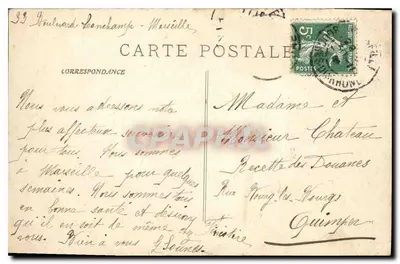 33 Boulevard Longchamp - Marseille,
CARTE POSTALE
CORRESPONDANCE
5c
POSTES
Nous vous adressons notre
plus affectueux souvenir
pour tous. Nous sommes
à Marseille pour quelques
semaines. Nous sommes tous
en bonne santé et désirons
qu'il en soit de même chez
vous. Bien à vous
Madame et
Monsieur Chateau
Recette des Douanes
Rue
Quimper
Finistère